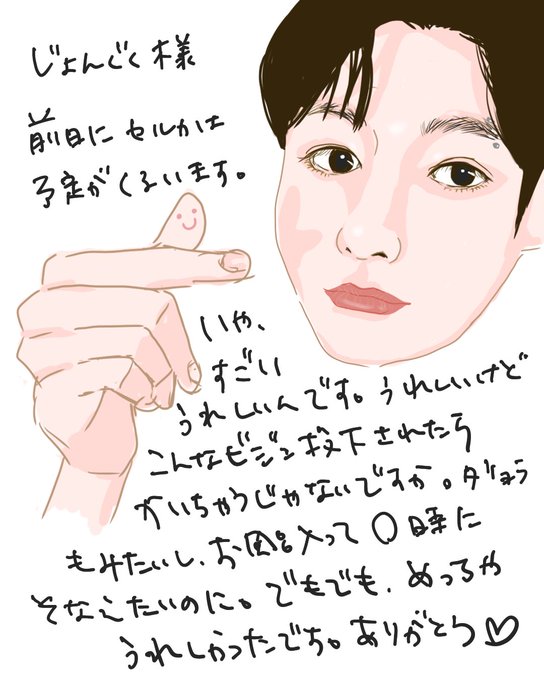 じょんぐく様
前日にセルカは
予定がくるいます。
いや、
すごい
うれしいんです。うれしいけど
こんなビジュ投下されたら
かいちゃうじゃないですか。ダリョラ
もみたいし、お風呂入って0時に
そなえたいのに。でもでも、めっちゃ
うれしかったです。ありがとう♡